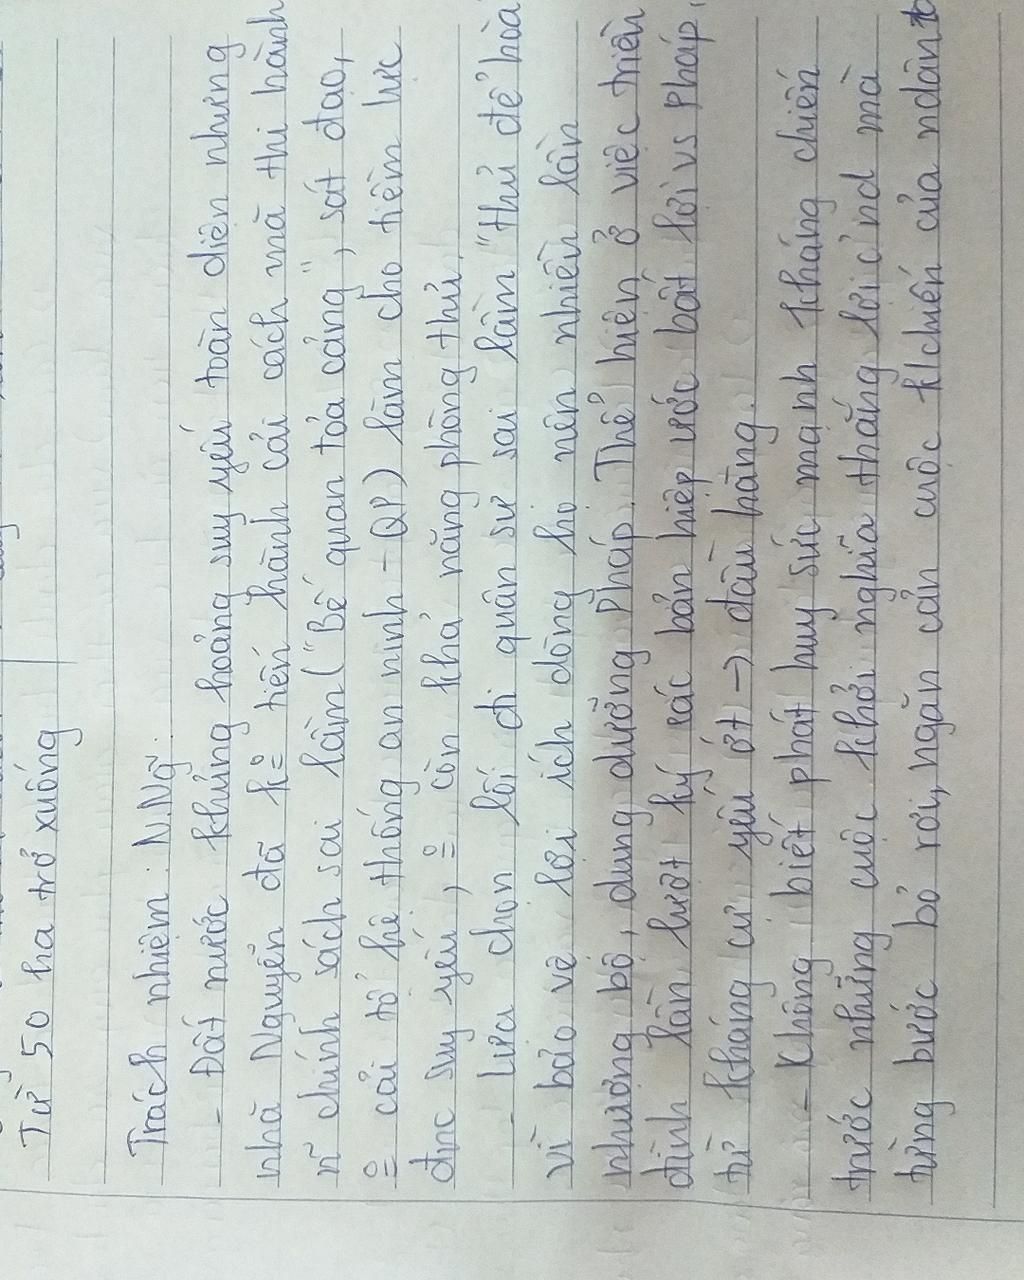 Từ 50 ha trở xuống
Trách nhiệm: N.Ng~.
- Đất nước khủng hoảng suy yếu toàn diện nhưng
nhà Nguyễn đã k tiến hành cải cách mà thi hành
n~ chính sách sai lầm ("Bế quan tỏa cảng", sát đạo,
cải tổ hệ thống an ninh - QP) làm cho tiềm lực
đnc suy yếu, còn khả năng phòng thủ.
- Lựa chọn lối đi quân sự sai lầm "thủ để hòa
vì bảo vệ lợi ích dòng họ nên nhiều lần
nhượng bộ, dung dưỡng Pháp. Thể hiện ở việc triều
đình lần lượt ký các bản hiệp ước bất lợi vs Pháp,
từ kháng cự yếu ớt → đầu hàng.
- Không biết phát huy sức mạnh kháng chiến
trước những cuộc khởi nghĩa thắng lợi củ nd mà
từng bước bỏ rơi, ngăn cản cuộc k/chiến của ndân